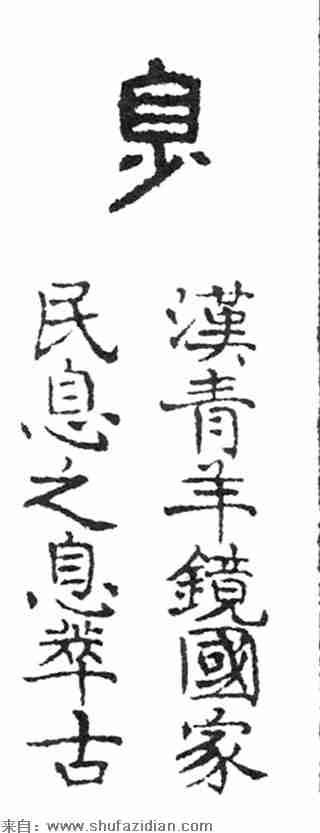 息
漢青羊鏡國家
民息之息萃古
来自：www.shufazidian.com